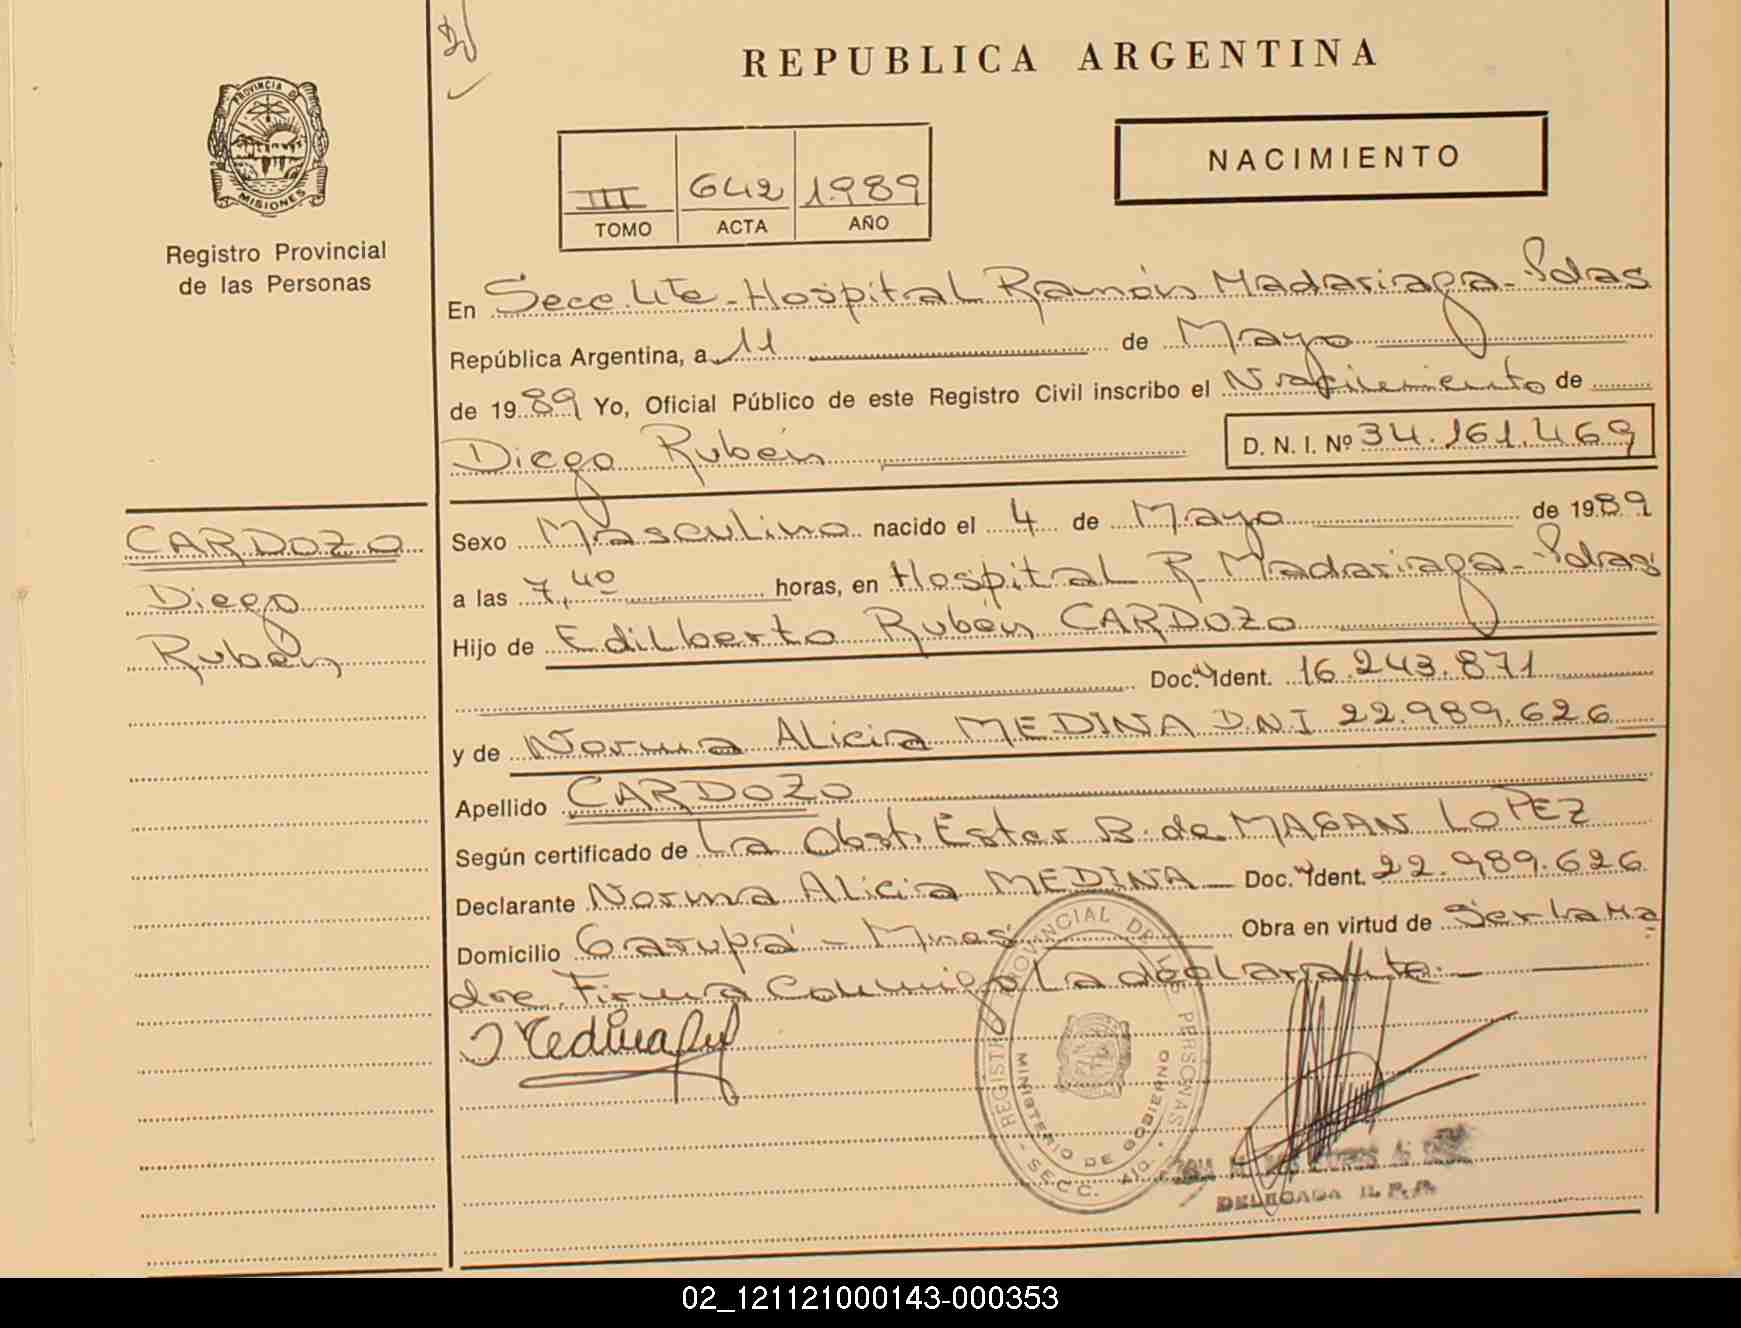 REPUBLICA ARGENTINA
NACIMIENTO
PROVINCIA DE
MISIONES
Registro Provincial
de las Personas
III 642 1989
TOMO ACTA AÑO
En Secc 4te - Hospital Ramón Madariaga - Pdas
República Argentina, a 11 de Mayo
de 1989 Yo, Oficial Público de este Registro Civil inscribo el Nacimiento de
Diego Rubén D. N. I. Nº 34.161.469
CARDOZO
Diego
Rubén
Sexo Masculino nacido el 4 de Mayo de 1989
a las 7,40 horas, en Hospital R. Madariaga - Pdas
Hijo de Edilberto Rubén CARDOZO
Doc. Ident. 16.243.871
y de Norma Alicia MEDINA D.N.I 22.989.626
Apellido CARDOZO
Según certificado de La Obst. Ester B. de MAGAN LOPEZ
Declarante Norma Alicia MEDINA Doc. Ident. 22.989.626
Domicilio Garupá - Mnes Obra en virtud de Ser la Ma
dre. Firma Conmigo La declarante.
REGISTRO PROVINCIAL DE LAS PERSONAS
MINISTERIO DE GOBIERNO
SECC. 4ta.
DELEGADA R. P. P.
02_121121000143-000353